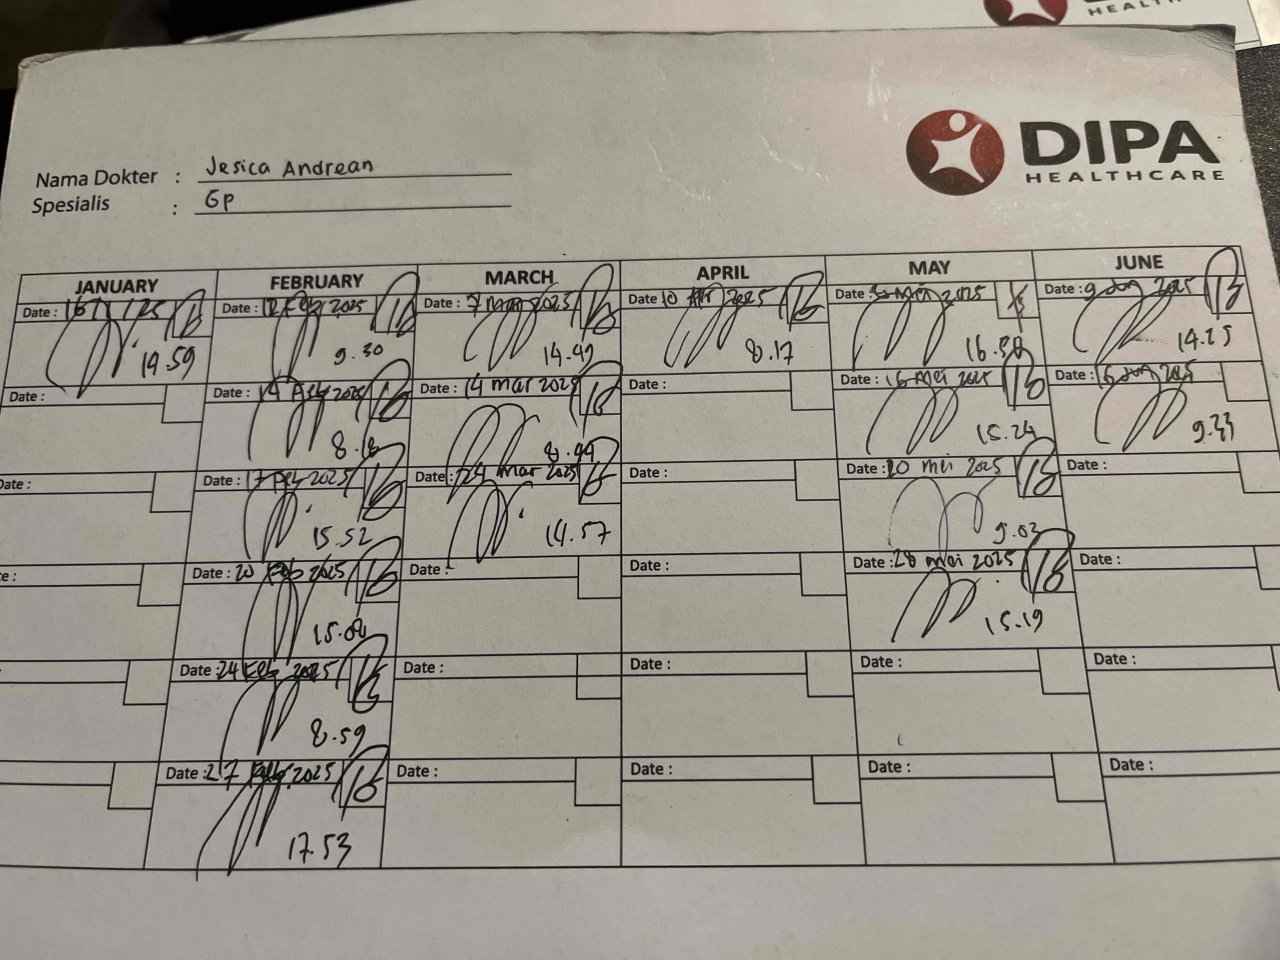 HEALTH
DIPA
HEALTHCARE
Nama Dokter : Jesica Andrean
Spesialis : Gp
JANUARY FEBRUARY MARCH APRIL MAY JUNE
Date : 16 / 1 / 25 Date : 12 Feb 2025 Date : 7 Mar 2025 Date : 10 Apr 2025 Date : Mei 2025 Date : 9 Jun 2025
14.59 9.30 14.49 8.17 16.50 14.25
Date : Date : 14 Feb 2025 Date : 14 mar 2025 Date : Date : 16 Mei 2025 Date : 15 Jun 2025
8.18 8.44 15.24 9.33
Date : Date : 17 Feb 2025 Date : 24 mar 2025 Date : Date : 20 mei 2025 Date :
15.52 14.57 9.03
te : Date : 20 Feb 2025 Date : Date : Date : 28 mei 2025 Date :
15.08 15.19
Date : 24 Feb 2025 Date : Date : Date : Date :
8.59
Date : 27 Feb 2025 Date : Date : Date : Date :
17.53